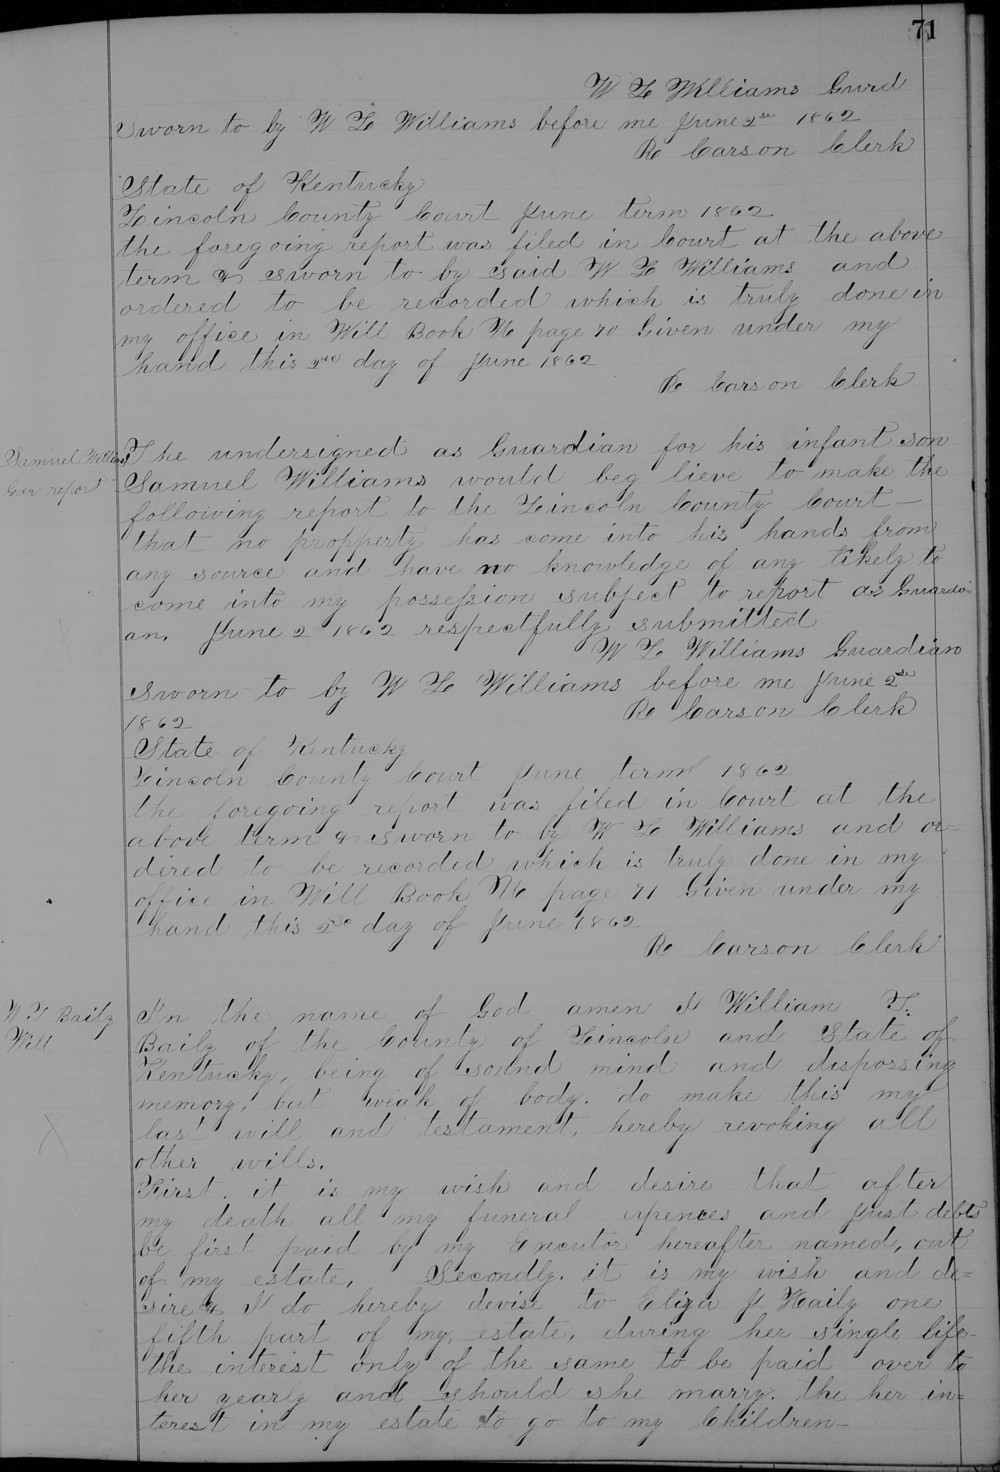 71
W L Williams Gurd
Sworn to by W L Williams before me June 2nd 1862
R Carson Clerk
State of Kentucky
Lincoln County Court June term 1862
the foregoing report was filed in Court at the above
term & sworn to by said W L Williams and
ordered to be recorded which is truly done in
my office in Will Book page 70 Given under my
hand this 2nd day of June 1862
R Carson Clerk
Samuel Williams
Gar report
The undersigned as Guardian for his infant son
Samuel Williams would beg lieve to make the
following report to the Lincoln County Court—
that no propperty has come into his hands from
any source and have no knowledge of any likely to
come into my possession subject to report as Guardi-
an. June 2 1862 respectfully submitted
W L Williams Guardian
Sworn to by W L Williams before me June 2nd
1862
R Carson Clerk
State of Kentucky
Lincoln County Court June term 1862
the foregoing report was filed in Court at the
above term & sworn to by W L Williams and or=
dired to be recorded which is truly done in my
office in Will Book page 71 Given under my
hand this 2nd day of June 1862
R Carson Clerk
W T Baily
Will
In the name of God amen I William T.
Baily of the County of Lincoln and State of
Kentucky, being of sound mind and dispossing
memory, but weak of body. do make this my
last will and testament, hereby revoking all
other wills.
First. it is my wish and desire that after
my death all my funeral expences and just debts
be first paid by my Executor hereafter named, out
of my estate, Secondly. it is my wish and de=
sire & I do hereby devise to Eliza J Haily one
fifth part of my estate, during her single life-
the interest only of the same to be paid over to
her yearly and should she marry. the her in=
terest in my estate to go to my Children—